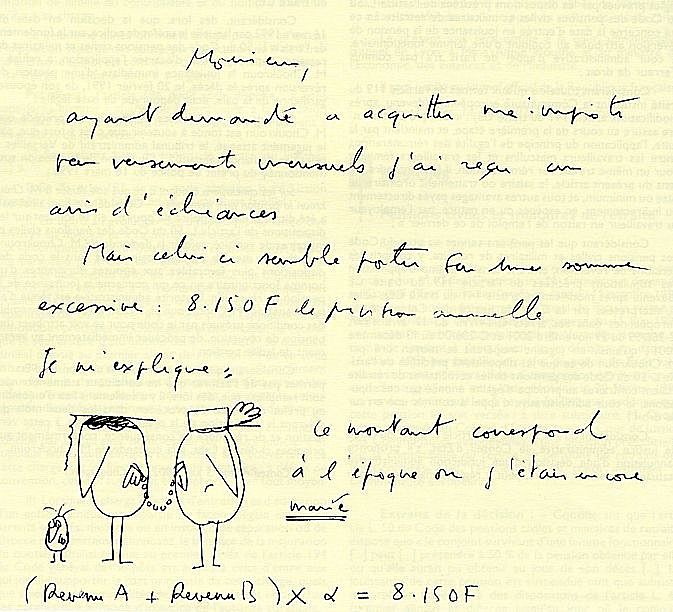 Monsieur,
ayant demandé a acquitter mes impots
par versements mensuels j'ai reçu un
avis d'échéances
Mais celui ci semble porter sur une somme
excessive : 8.150F de provision annuelle
Je m'explique :
Ce montant correspond
à l'époque ou j'étais encore
marié
(Revenu A + Revenu B) X α = 8.150F